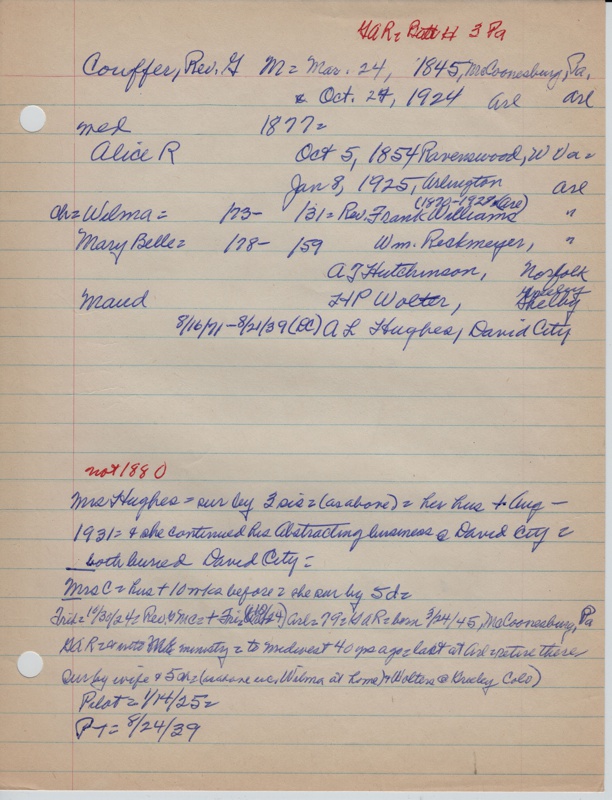 GAR= Batt H 3 Pa
Couffer, Rev. G M= Mar. 24, 1845, McConnesburg, Pa.
& Oct. 24, 1924 Arl Arl
med 1877=
Alice R Oct 5, 1854 Ravenswood, W Va=
Jan 8, 1925, Arlington Arl
(1870-1928 Arl)
ch= Wilma= /73- /31= Rev. Frank Williams "
Mary Belle= /78- /59 Wm. Reckmeyer, "
A J Hutchinson, Norfolk
Maud H P Wolter, Shelby
8/16/71-8/21/39 (DC) A L Hughes, David City
not 1880
Mrs Hughes= sur by 3 sis= (as above)= her hus + Aug-
1931= & she continued his Abstracting business @ David City=
both buried David City=
Mrs C= hus + 10 wks before= she sur by 5 d=
Arl= 79= GAR= born 3/24/45, McConnesburg, Pa
GAR= ministry= to midwest 40 yrs ago= last at Arl= retire there
sur by wife & 5 ch= Wilma at home) & Wolters @ Greeley Colo)
Pilot= 1/14/25=
PT= 8/24/39